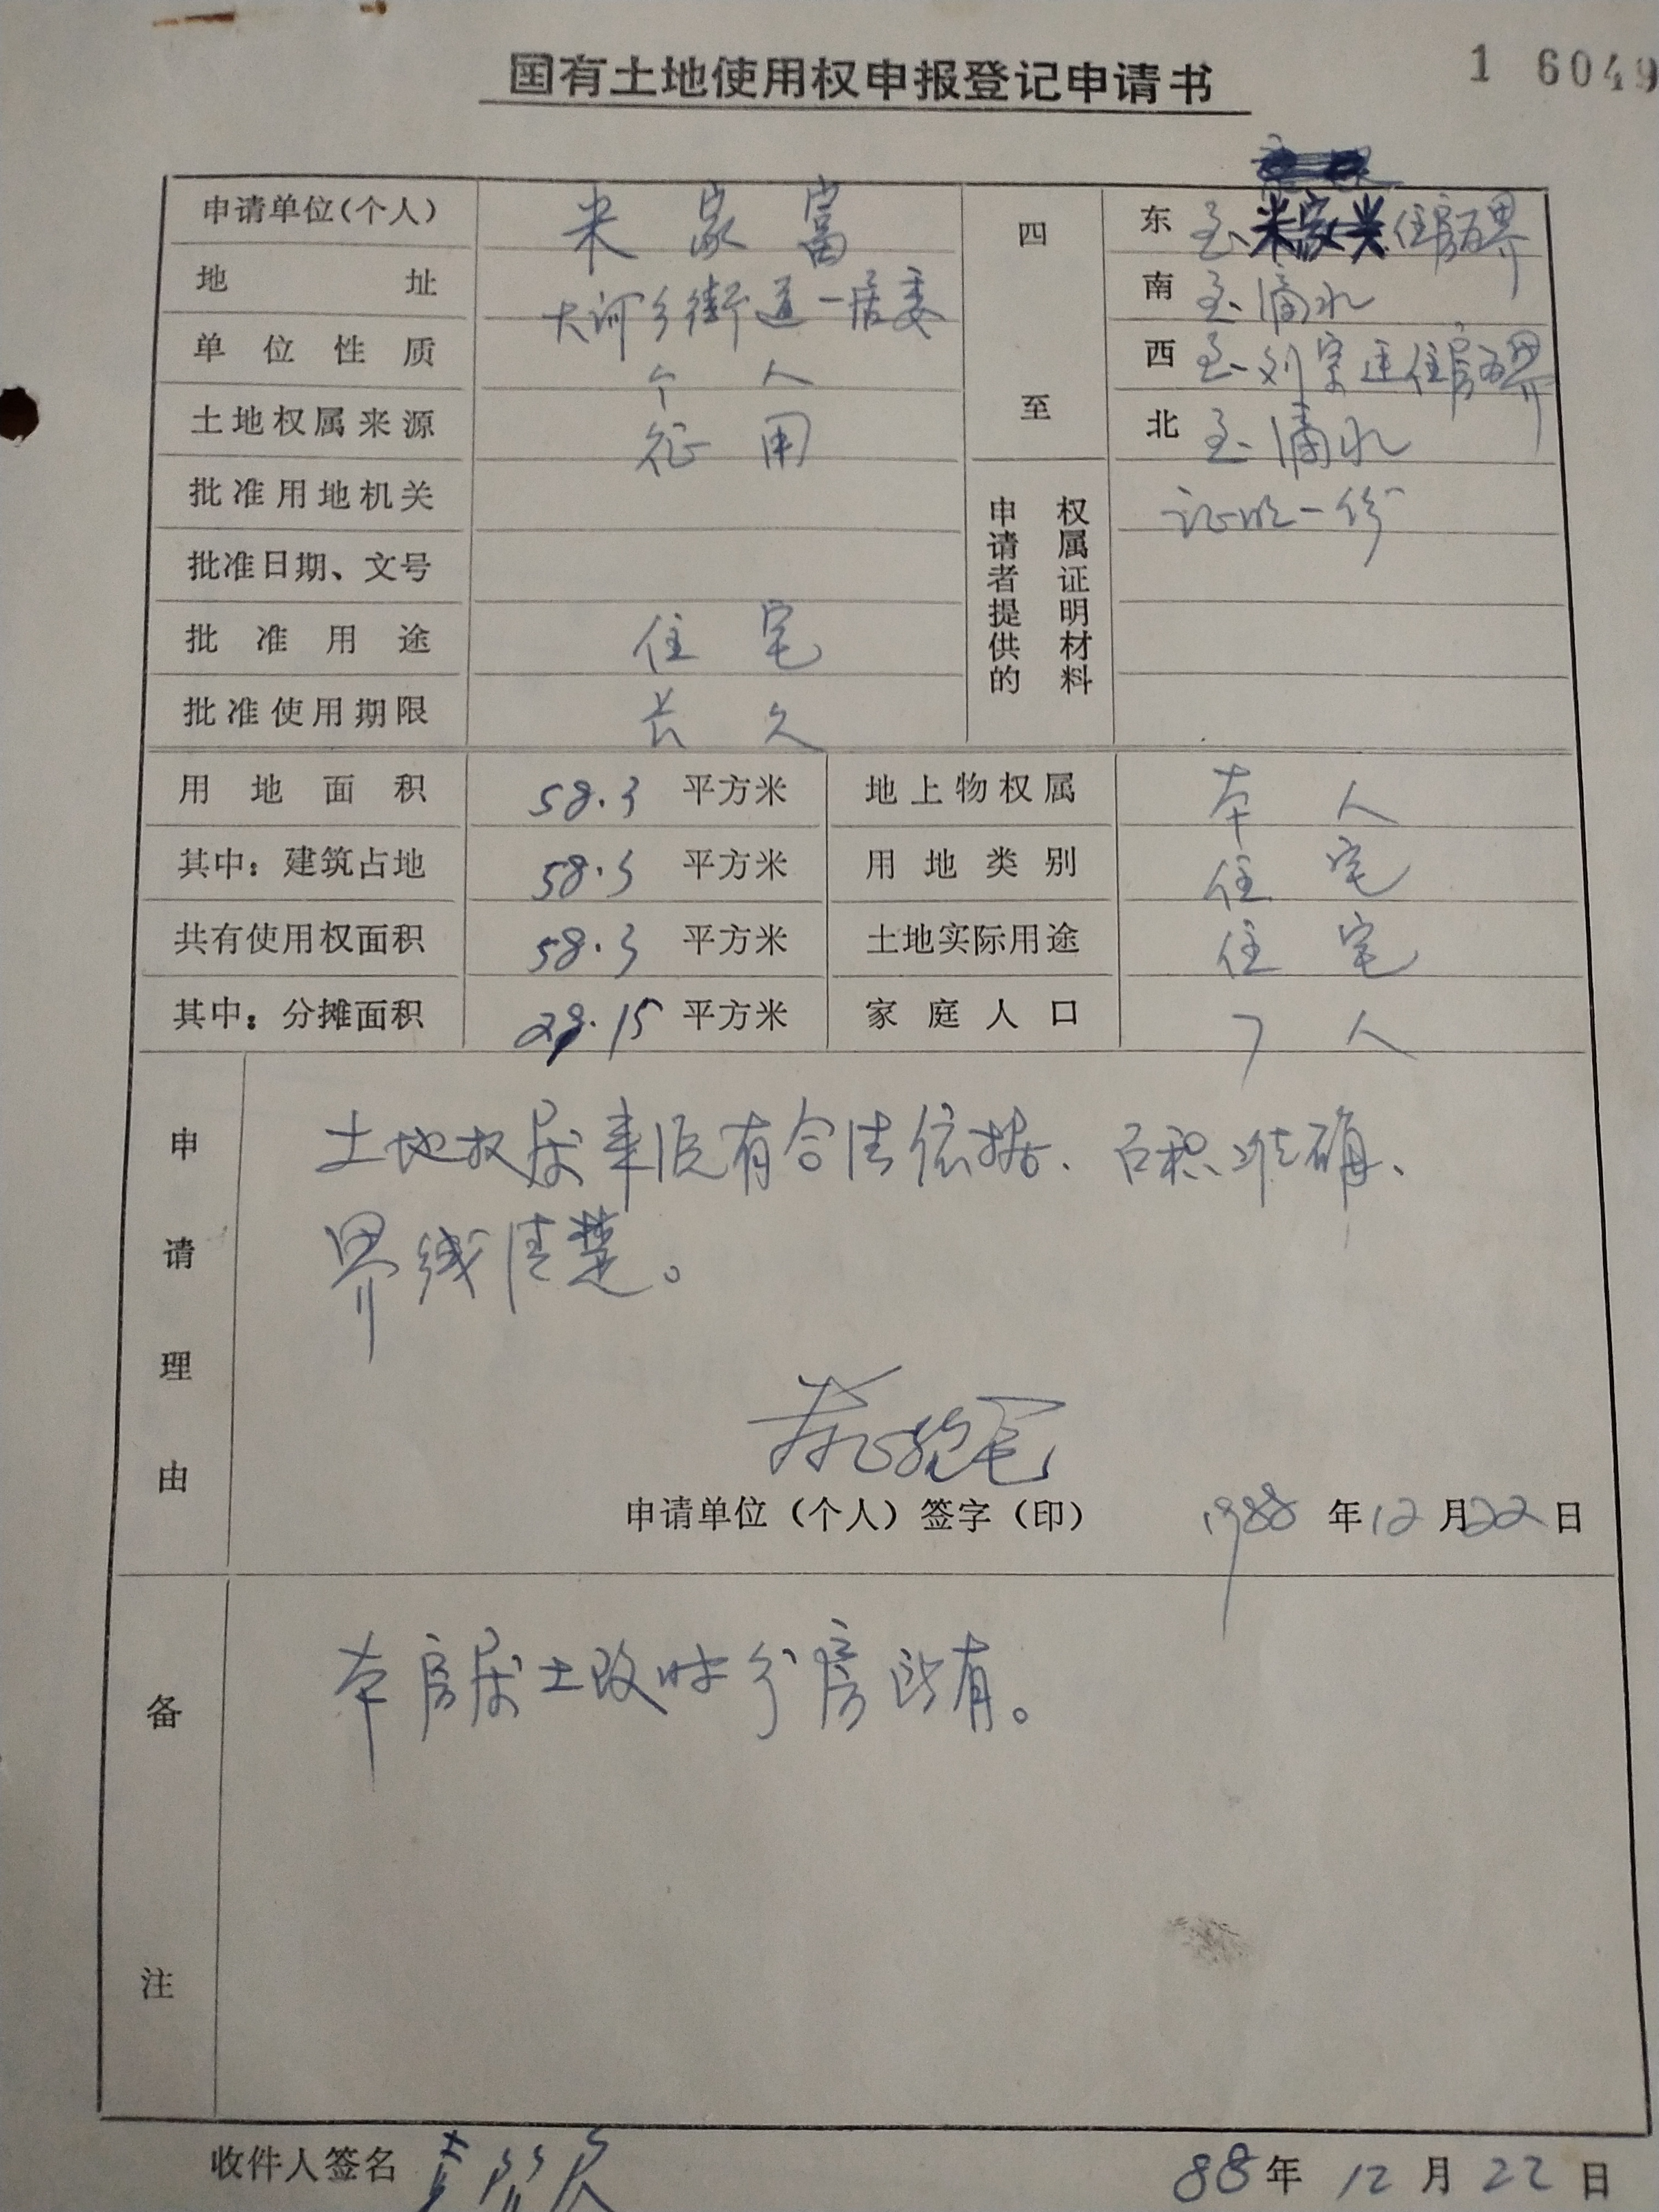 国有土地使用权申报登记申请书
1 6049
申请单位(个人) 米家富
地址 大河乡街道一居委
单位性质 个人
土地权属来源 征用
批准用地机关
批准日期、文号
批准用途 住宅
批准使用期限 长久
四至
东 至米家兴住房为界
南 至滴水
西 至刘宗连住房为界
北 至滴水
申请者提供的权属证明材料
证明一份
用地面积 58.3 平方米 地上物权属 本人
其中:建筑占地 58.3 平方米 用地类别 住宅
共有使用权面积 58.3 平方米 土地实际用途 住宅
其中:分摊面积 29.15 平方米 家庭人口 7人
申请理由
土地权属来源有合法依据、面积准确、
界线清楚。
申请单位(个人)签字(印) 1988年12月22日
备注
本房屋土改时分房所有。
收件人签名 88年12月22日